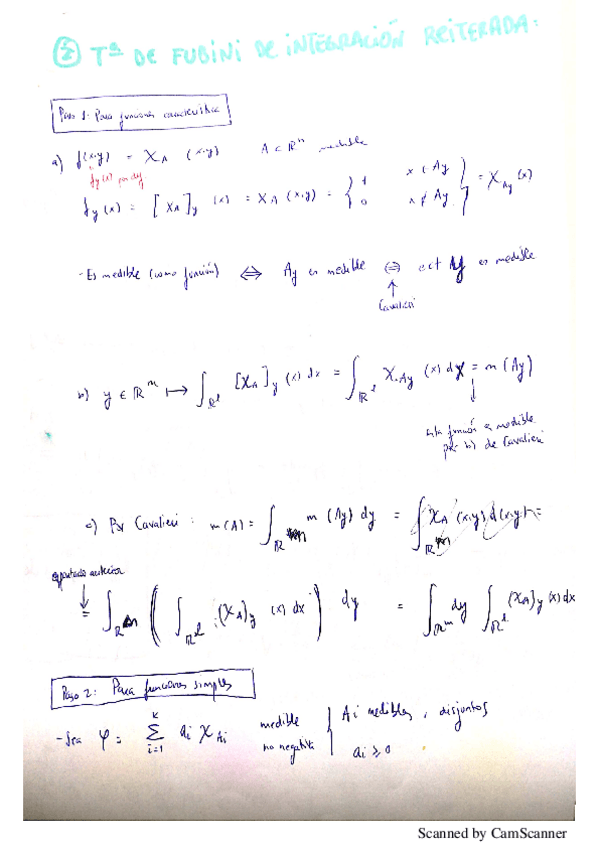 ② Tª DE FUBINI DE INTEGRACIÓN REITERADA:
Paso 1: Para funciones característica
a) f(x,y) = χ_A (x,y) A ⊂ ℝⁿ medible
f_y(x) = [χ_A]_y (x) = χ_A (x,y) = { 1 x ∈ A_y
0 x ∉ A_y } = χ_{A_y}(x)
- Es medible (como función) ⟺ A_y es medible ⟺ ect A_y es medible
↑
Cavalieri
b) y ∈ ℝ^m ⟼ ∫_{ℝ^l} [χ_A]_y (x) dx = ∫_{ℝ^l} χ_{A_y} (x) dx = m (A_y)
↓
esta función es medible
por b) de Cavalieri
c) Por Cavalieri: m(A) = ∫_{ℝ^m} m (A_y) dy = ∫_{ℝ^m} χ_A (x,y) d(x,y) =
apartado anterior
↓
= ∫_{ℝ^m} ( ∫_{ℝ^l} (χ_A)_y (x) dx ) dy = ∫_{ℝ^m} dy ∫_{ℝ^l} (χ_A)_y (x) dx
Paso 2: Para funciones simples
- Sea φ = Σ_{i=1}^{k} a_i χ_{A_i} medible { A_i medibles, disjuntos
no negativa a_i ≥ 0
Scanned by CamScanner